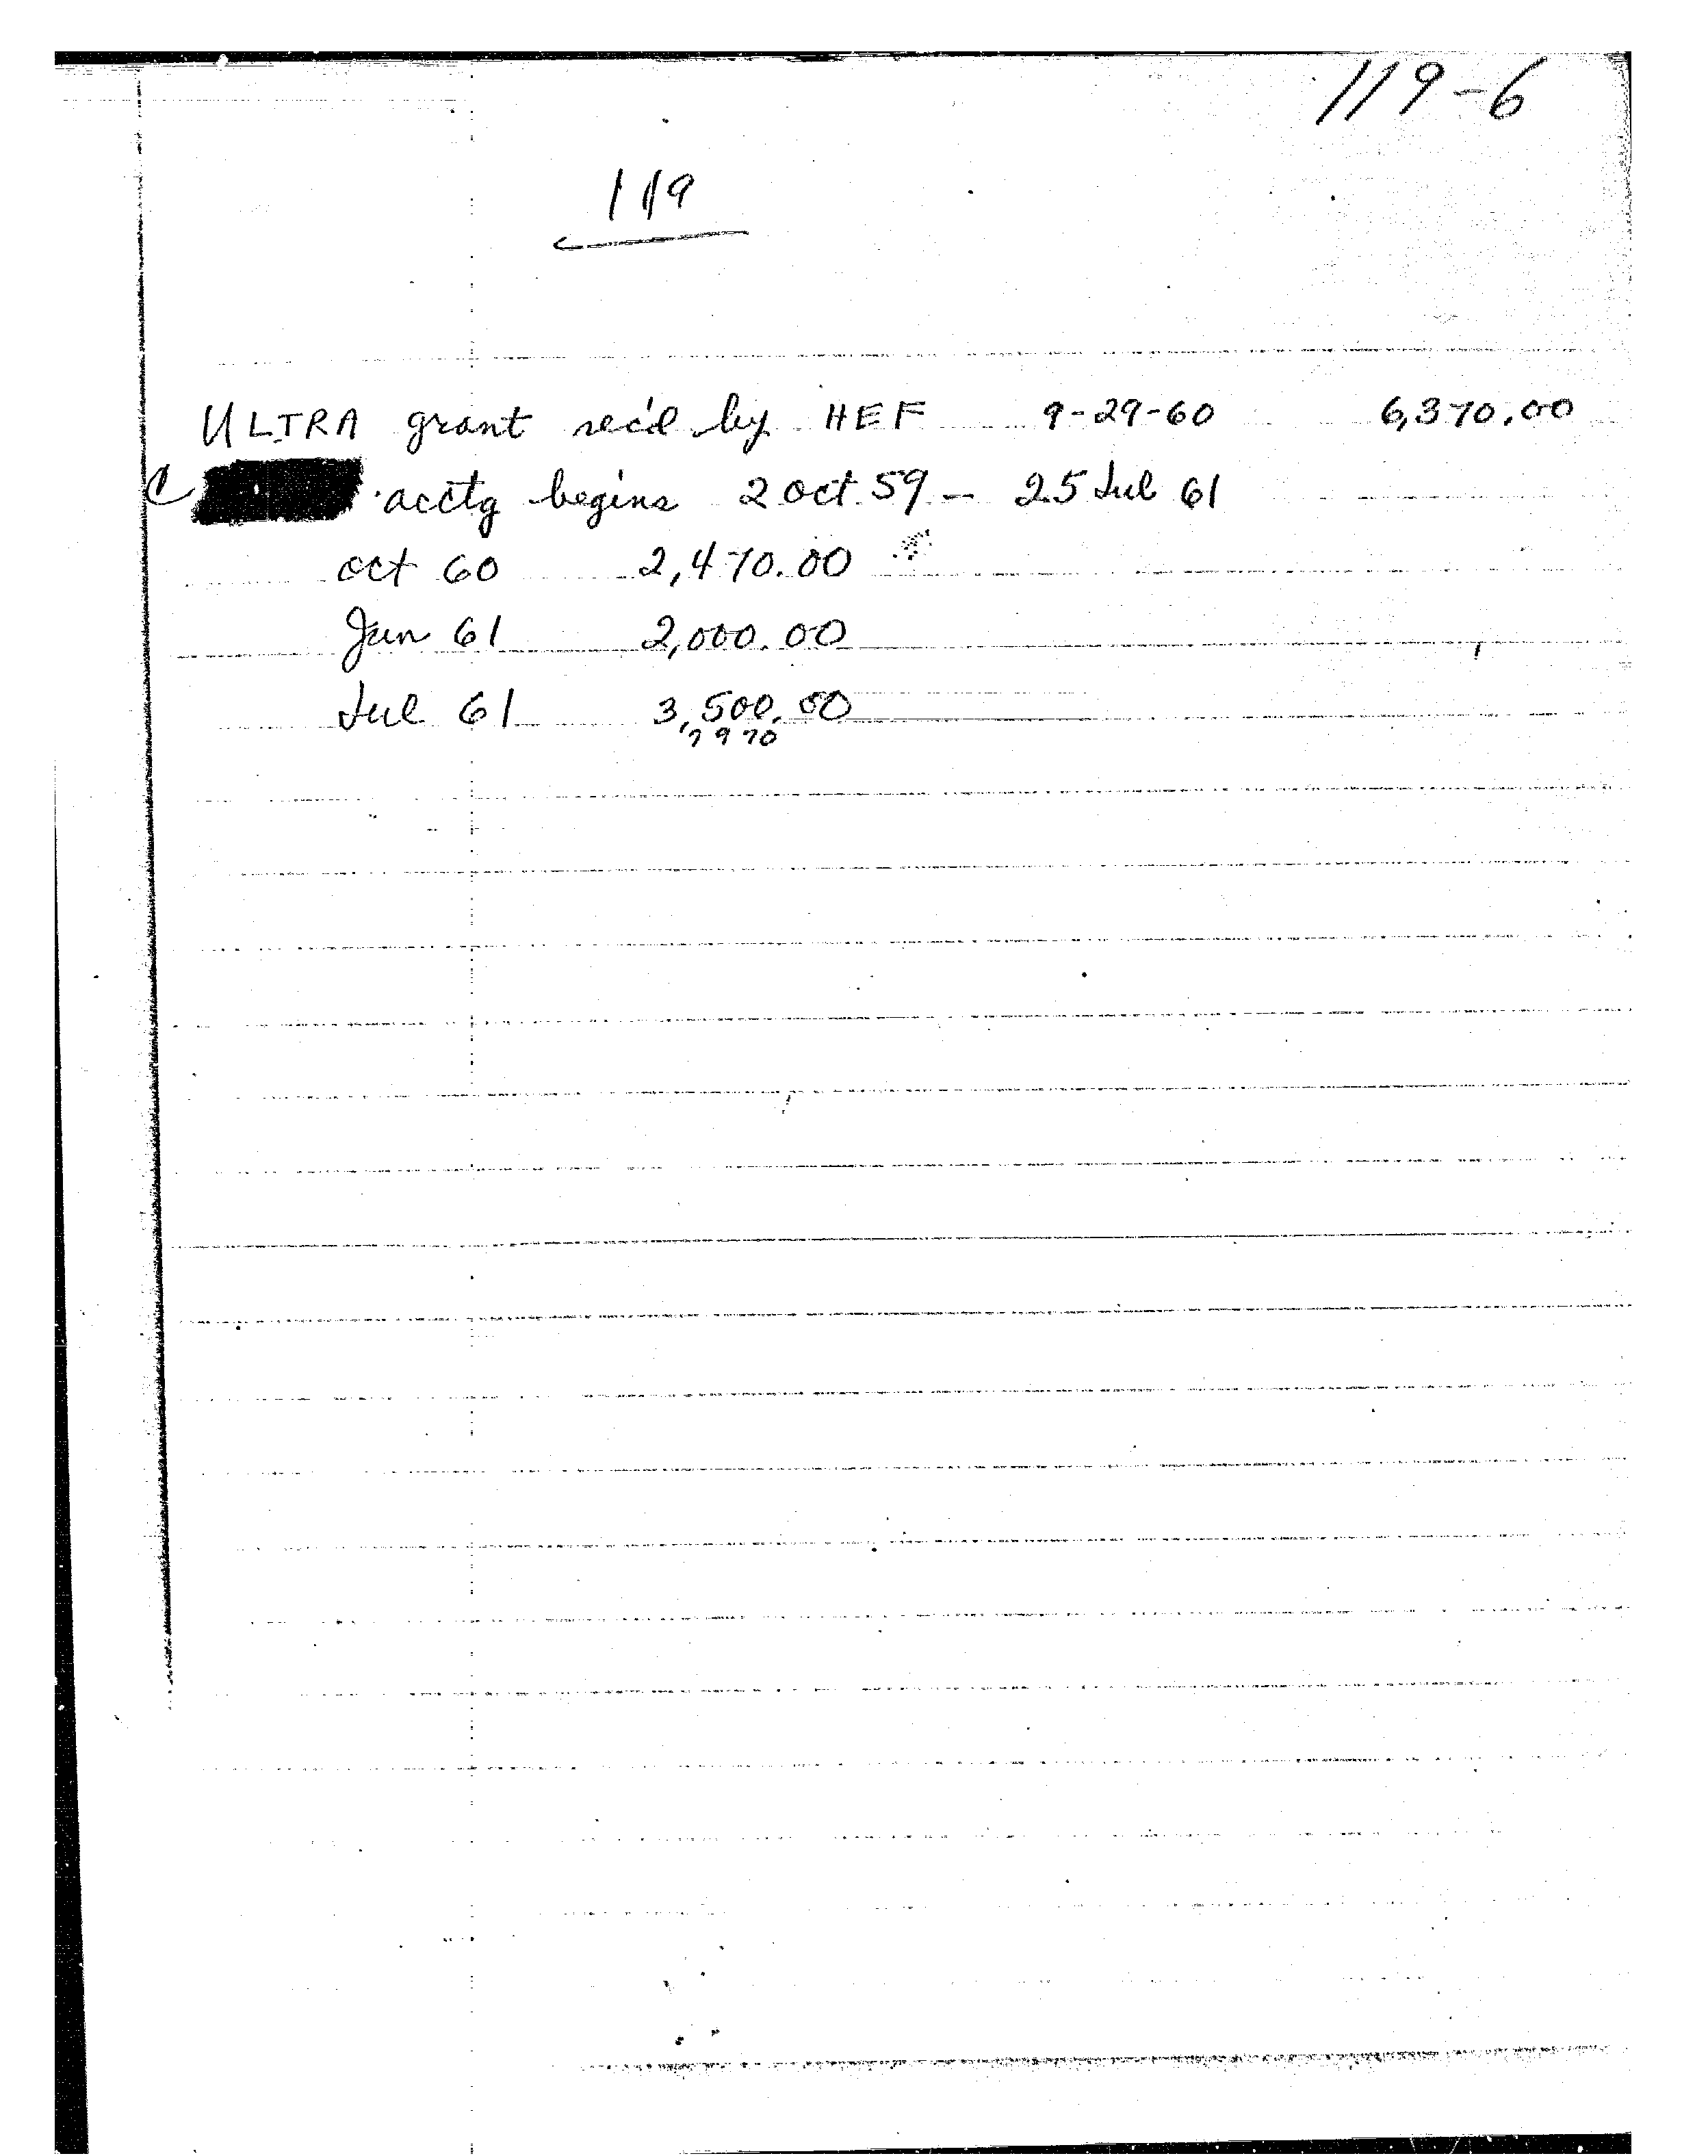 119-6
119
ULTRA grant rec'd by HEF 9-29-60 6,370.00
C acctg begins 2 Oct 59 - 25 Jul 61
Oct 60 2,470.00
Jan 61 2,000.00
Jul 61 3,500.00
7970